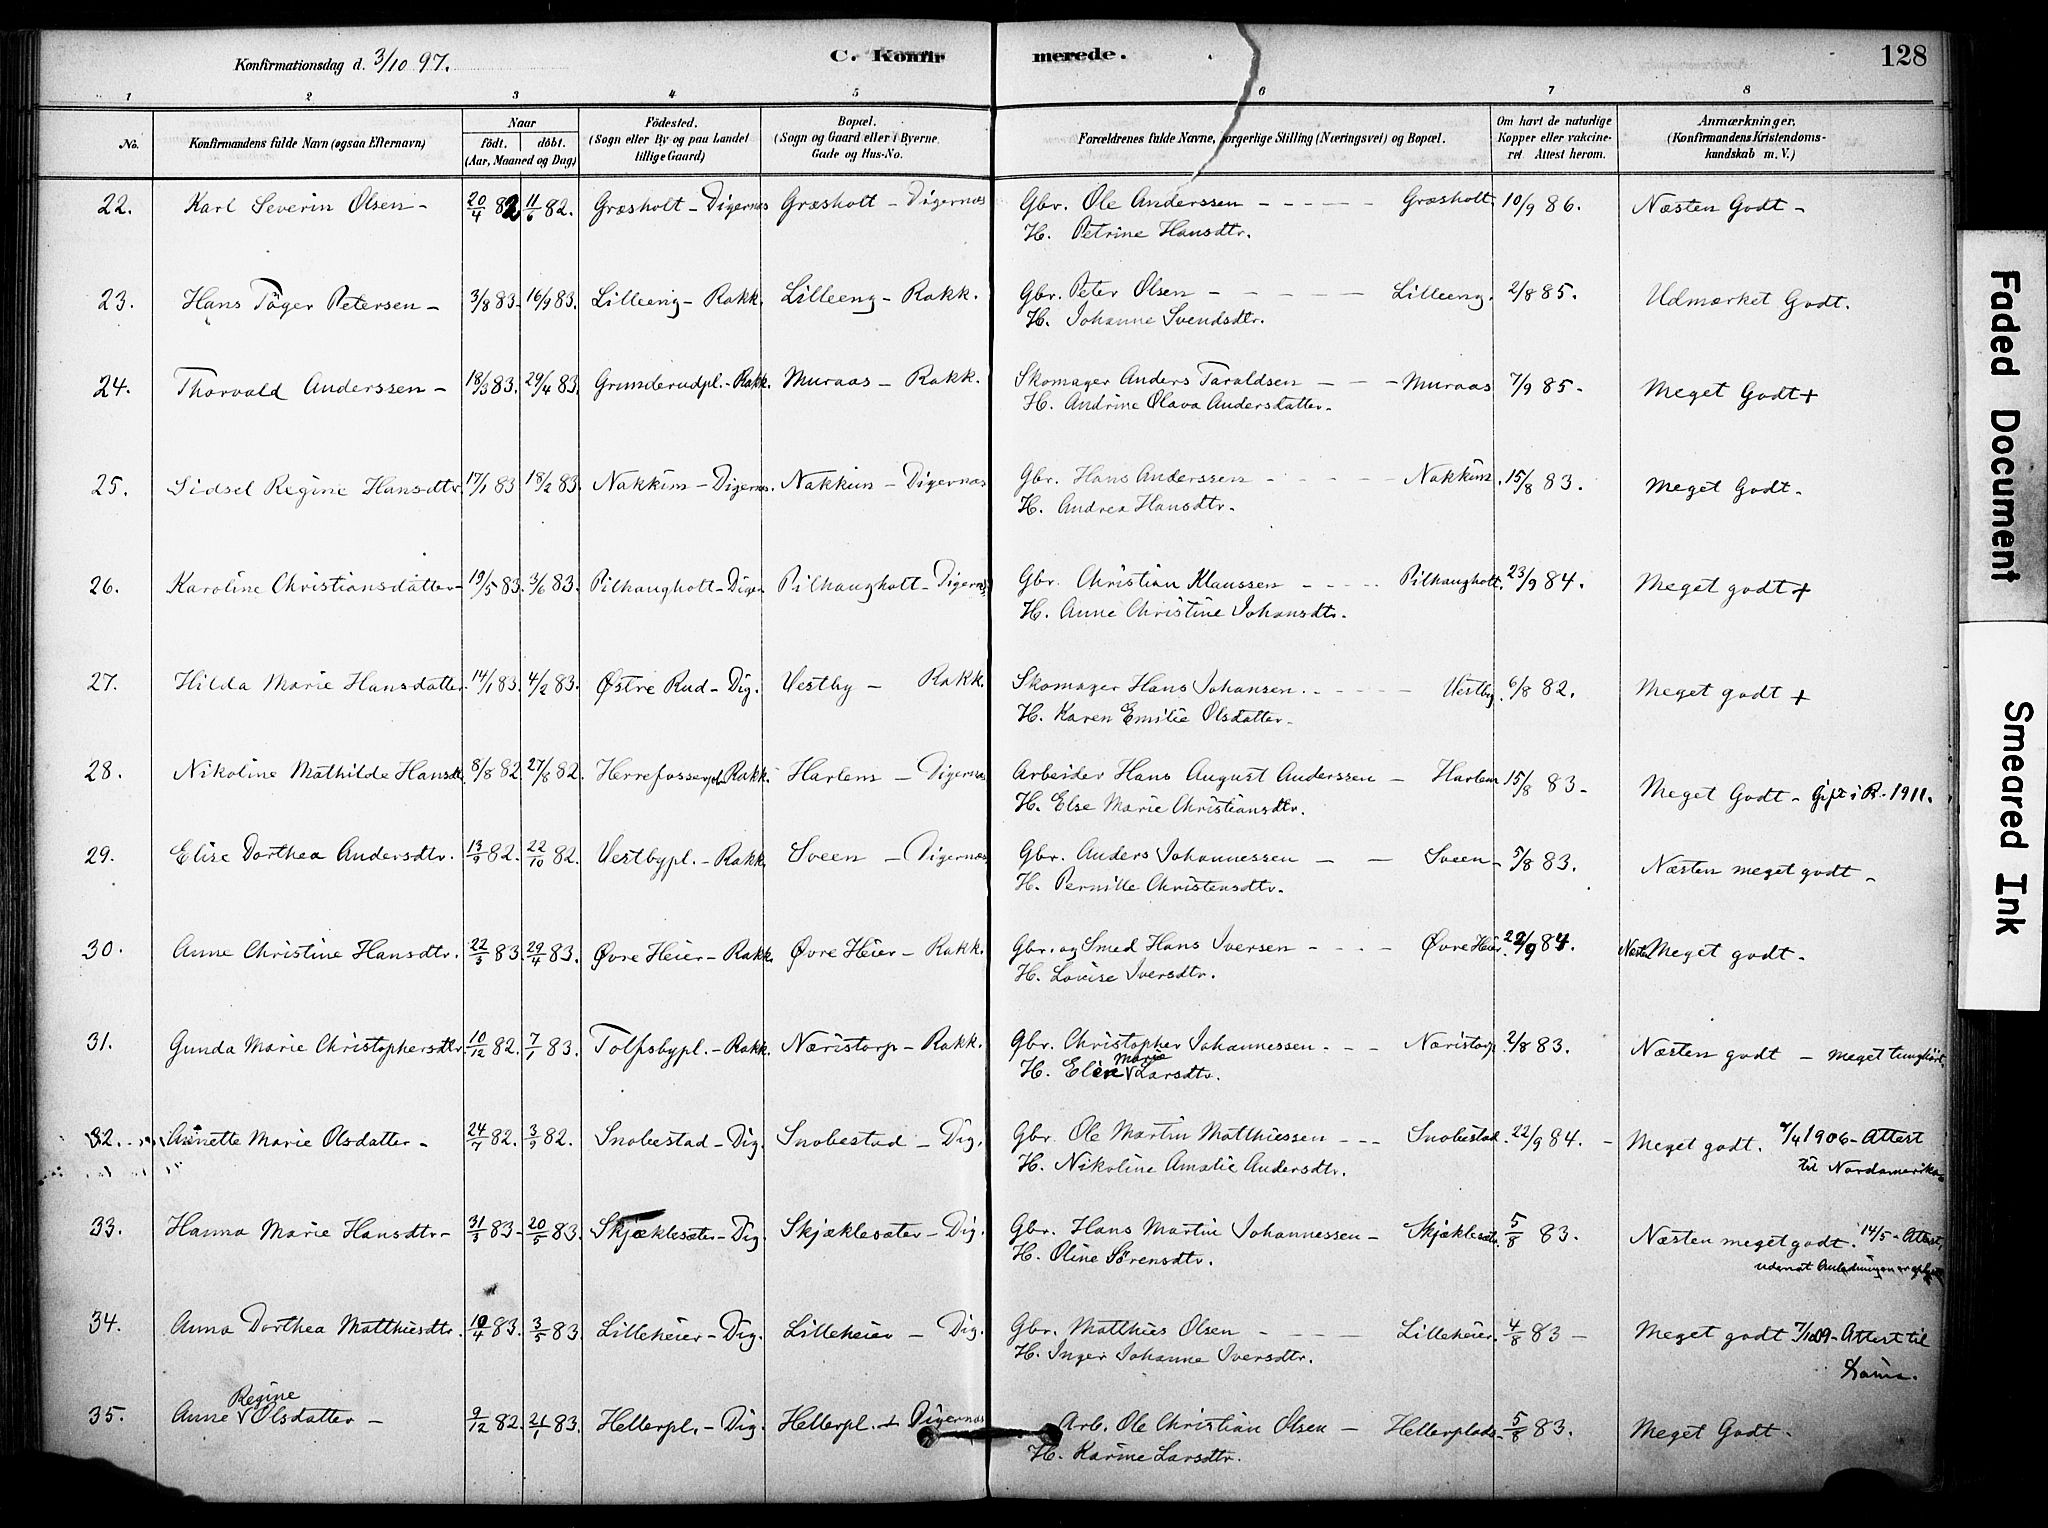 Konfirmationsdag d. 3/10 97. C. Konfirmerede. 128
1 2 3 4 5 6 7 8
No. Konfirmandens fulde Navn (ogsaa Efternavn) Naar födt. döbt. (Aar, Maaned og Dag) Födested. (Sogn eller By og paa Landet tillige Gaard) Bopæl. (Sogn og Gaard eller i Byerne Gade og Hus-No. Forældrenes fulde Navne, borgerlige Stilling (Næringsvei) og Bopæl. Om havt de naturlige Kopper eller vakcineret Attest herom. Anmærkninger. (Konfirmandens Kristendomskundskab m. V.)
22. Karl Severin Olsen - 20/4 82 11/6 82. Græsholt - Digernæs Græsholt - Digernæs Gbr. Ole Anderssen - - - - - Græsholt. 10/9 86. Næsten Godt -
H. Petrine Hansdtr.
23. Hans Töger Petersen - 3/8 83. 16/9 83. Lilleeng - Rakk. Lilleeng - Rakk. Gbr. Peter Olsen - - - - - Lilleeng. 2/8 85. Udmærket Godt.
H. Johanne Svendsdtr.
24. Thorvald Anderssen - 18/3 83. 29/4 83. Grunderudpl. - Rakk. Muraas - Rakk. Skomager Anders Taraldsen - - - Muraas 7/9 85. Meget Godt +
H. Andrine Olava Andersdatter.
25. Sidsel Regine Hansdtr. 17/1 83 18/2 83. Nakkim - Digernæs. Nakkim - Digernæs Gbr. Hans Anderssen - - - - - Nakkim. 15/8 83. Meget Godt.
H. Andrea Hansdtr.
26. Karoline Christiansdatter 19/5 83. 3/6 83. Pilhaugholt - Digern. Pilhaugholt - Digernæs Gbr. Christian Klaussen - - - - Pilhaugholt. 23/9 84. Meget godt +
H. Anne Christine Johansdtr.
27. Hilda Marie Hansdatter. 14/1 83. 4/2 83. Østre Rud - Dig. Vestby - Rakk. Skomager Hans Johansen. - - - - Vestby. 6/8 82. Meget godt +
H. Karen Emilie Olsdatter.
28. Nikoline Mathilde Hansdtr. 8/8 82. 27/8 82. Herrefosserpl. Rakk. Harlem - Digernæs Arbeider Hans August Anderssen - Harlem 15/8 83. Meget Godt - Gift i R. 1911.
H. Else Marie Christiansdtr.
29. Elise Dorthea Andersdtr. 13/9 82. 22/10 82. Vestbypl. - Rakk. Sveen - Digernæs Gbr. Anders Johannessen - - Sveen - 5/8 83. Næsten meget godt -
H. Pernille Christensdtr.
30. Anne Christine Hansdtr. 22/3 83. 29/4 83. Øvre Heier - Rakk. Øvre Heier - Rakk. Gbr. og Smed Hans Iversen - - - - Øvre Heier. 22/9 84. Næsten Meget godt.
H. Lovise Iversdtr.
31. Gunda Marie Christophersdtr. 10/12 82. 7/1 83. Tolfsbypl. - Rakk. Næristorp - Rakk. Gbr. Christopher Johannessen. - - - Næristorp 2/8 83. Næsten godt - meget tunghört.
H. Elen Marie Larsdtr.
32. Annette Marie Olsdatter - 24/7 82. 3/9 82. Snobestad - Dig. Snobestad - Dig. Gbr. Ole Martin Matthiessen - - - Snobestad. 22/9 84. - Meget godt. 7/4 1906 - Attest
H. Nikoline Amalie Andersdtr. til Nordamerika.
33. Hanna Marie Hansdtr - 31/3 83 - 20/5 83. Skjæklesæter - Dig. Skjæklesæter - Dig. Gbr. Hans Martin Johannessen - Skjæklesæt. 5/8 83. Næsten meget godt. 14/5 - Attest,
H. Oline Sörensdtr. uden at Anledningen er opl.
34. Anna Dorthea Matthiesdtr. 10/4 83. 3/5 83. Lilleheier - Dig. Lilleheier - Dig. Gbr. Matthies Olsen - - - - Lilleheier. 4/8 83 - Meget godt 7/10 09 - Attest til
H. Inger Johanne Iversdtr.
35. Anne Regine Olsdatter - 9/12 82. 21/1 83. Hellerpl. - Dig. Hellerpl. - Digernæs Arb. Ole Christian Olsen - Hellerplads - 5/8 83. Meget Godt -
H. Karine Larsdtr.
Faded Document
Smeared Ink